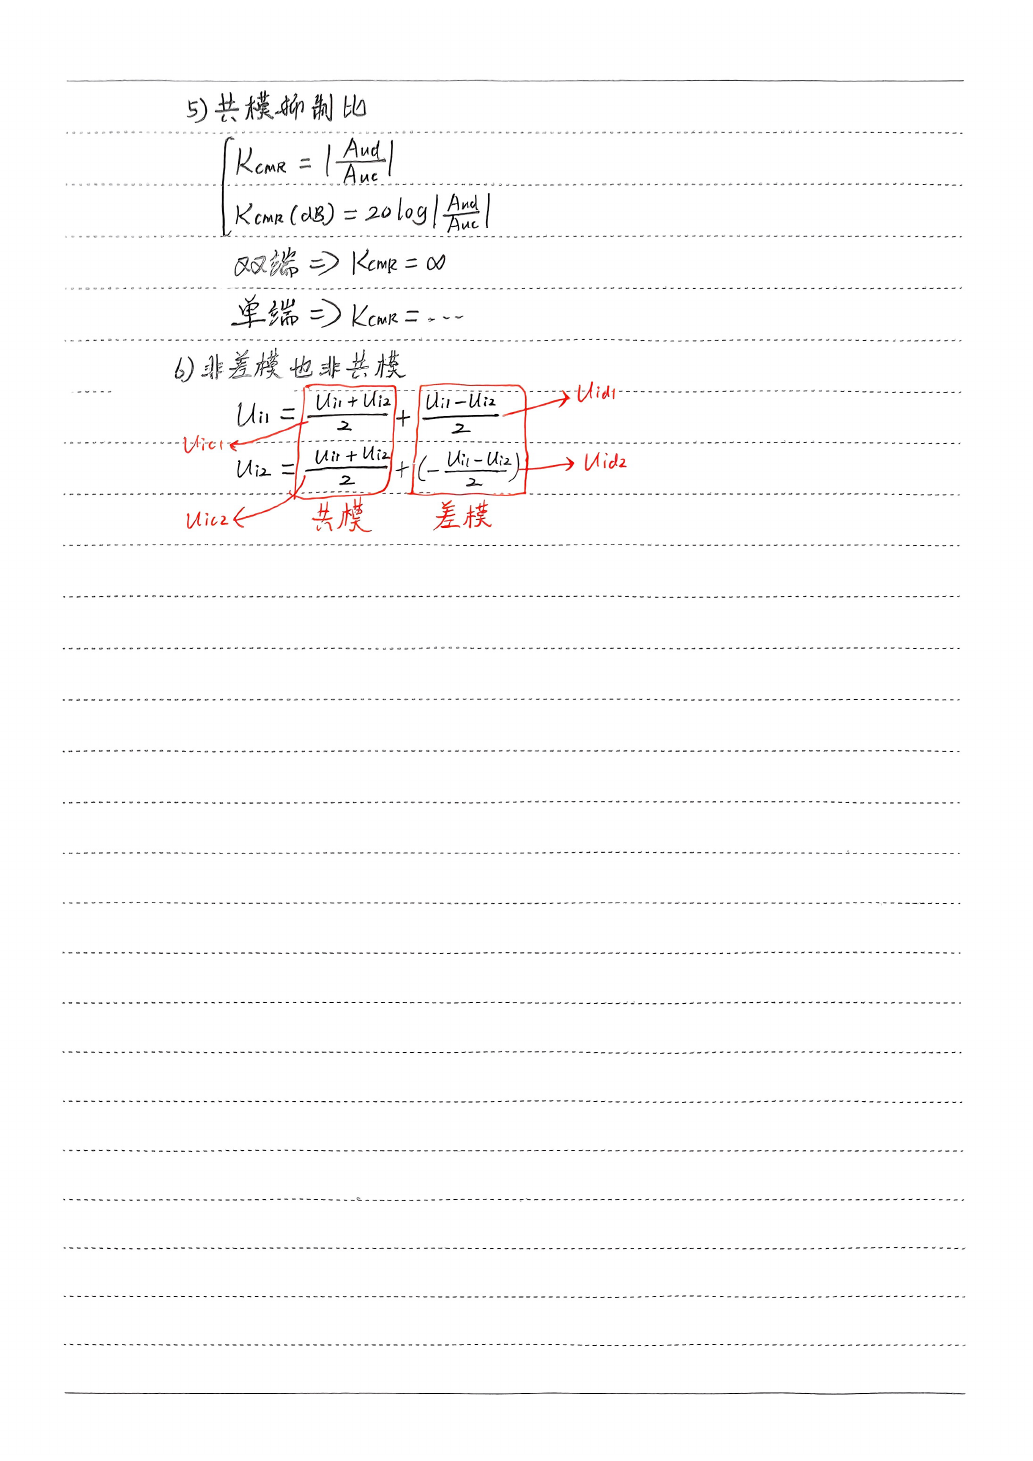 5) 共模抑制比
K_CMR = |Aud/Auc|
K_CMR (dB) = 20 log|Aud/Auc|
双端 => K_CMR = ∞
单端 => K_CMR = ...
6) 非差模也非共模
Ui1 = (Ui1 + Ui2)/2 + (Ui1 - Ui2)/2 → Uid1
Uic1 ←
Ui2 = (Ui1 + Ui2)/2 + (-(Ui1 - Ui2)/2) → Uid2
Uic2 ← 共模 差模